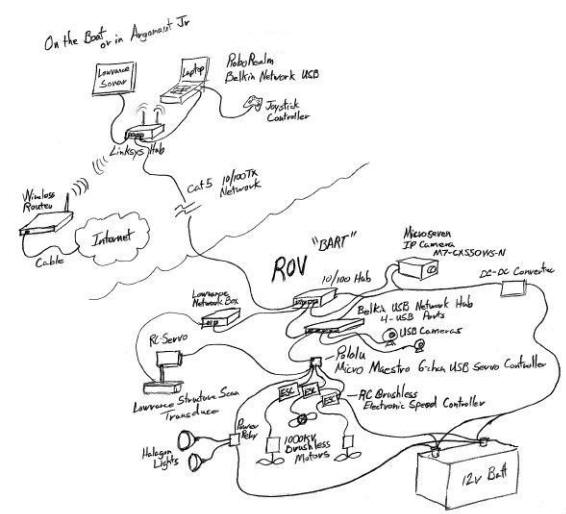 On the Boat
or in Argonaut Jr
Lowrance
Sonar
Laptop
RoboRealm
Belkin Network USB
Joystick
Controller
Linksys Hub
Cat5 10/100TX
Network
Wireless
Router
Internet
Cable
ROV "BART"
Microseven
IP Camera
M7-CXSSOWS-N
10/100 Hub
DC-DC Convertor
Lowrance
Network Box
Belkin USB Network Hub
4-USB Ports
USB Cameras
RC-Servo
Pololu
Micro Maestro 6-chan USB Servo Controller
Lowrance Structure Scan
Transducer
ESC
ESC
ESC
RC Brushless
Electronic Speed Controller
Power
Relay
Halogen
Lights
1000KV
Brushless
Motors
12v Batt